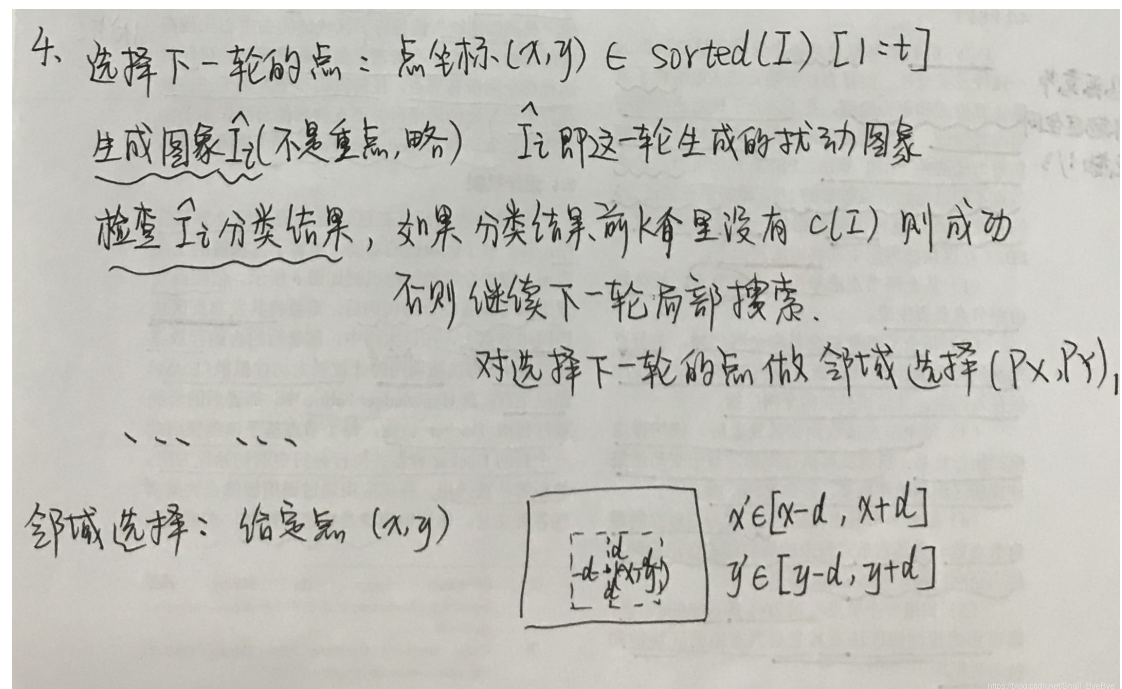 4、选择下一轮的点：点坐标(x,y) ∈ sorted(I) [1:t]
生成图象Îi(不是重点,略) Îi 即这一轮生成的扰动图象
检查 Îi 分类结果，如果分类结果前k个里没有 C(I) 则成功
否则继续下一轮局部搜索.
对选择下一轮的点做邻域选择(Px,Py),
、、、 、、、
邻域选择：给定点 (x,y)
x'∈[x-d, x+d]
y'∈[y-d, y+d]
d
-d (x,y) d
d